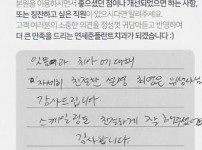 본원을 이용하시면서 좋으셨던 점이나 개선되었으면 하는 사항,
또는 칭찬하고 싶은 직원이 있으시다면 알려주세요.
고객 여러분의 소중한 의견을 정성껏 귀담아듣고 반영하여
더 큰 만족을 드리는 연세준플란트치과가 되겠습니다 :)
잇몸과 치아에 대해
자세히 친절한 설명 최영은 위생사님
감사드립니다
스케일링도 친절하게 잘
감사합니다.